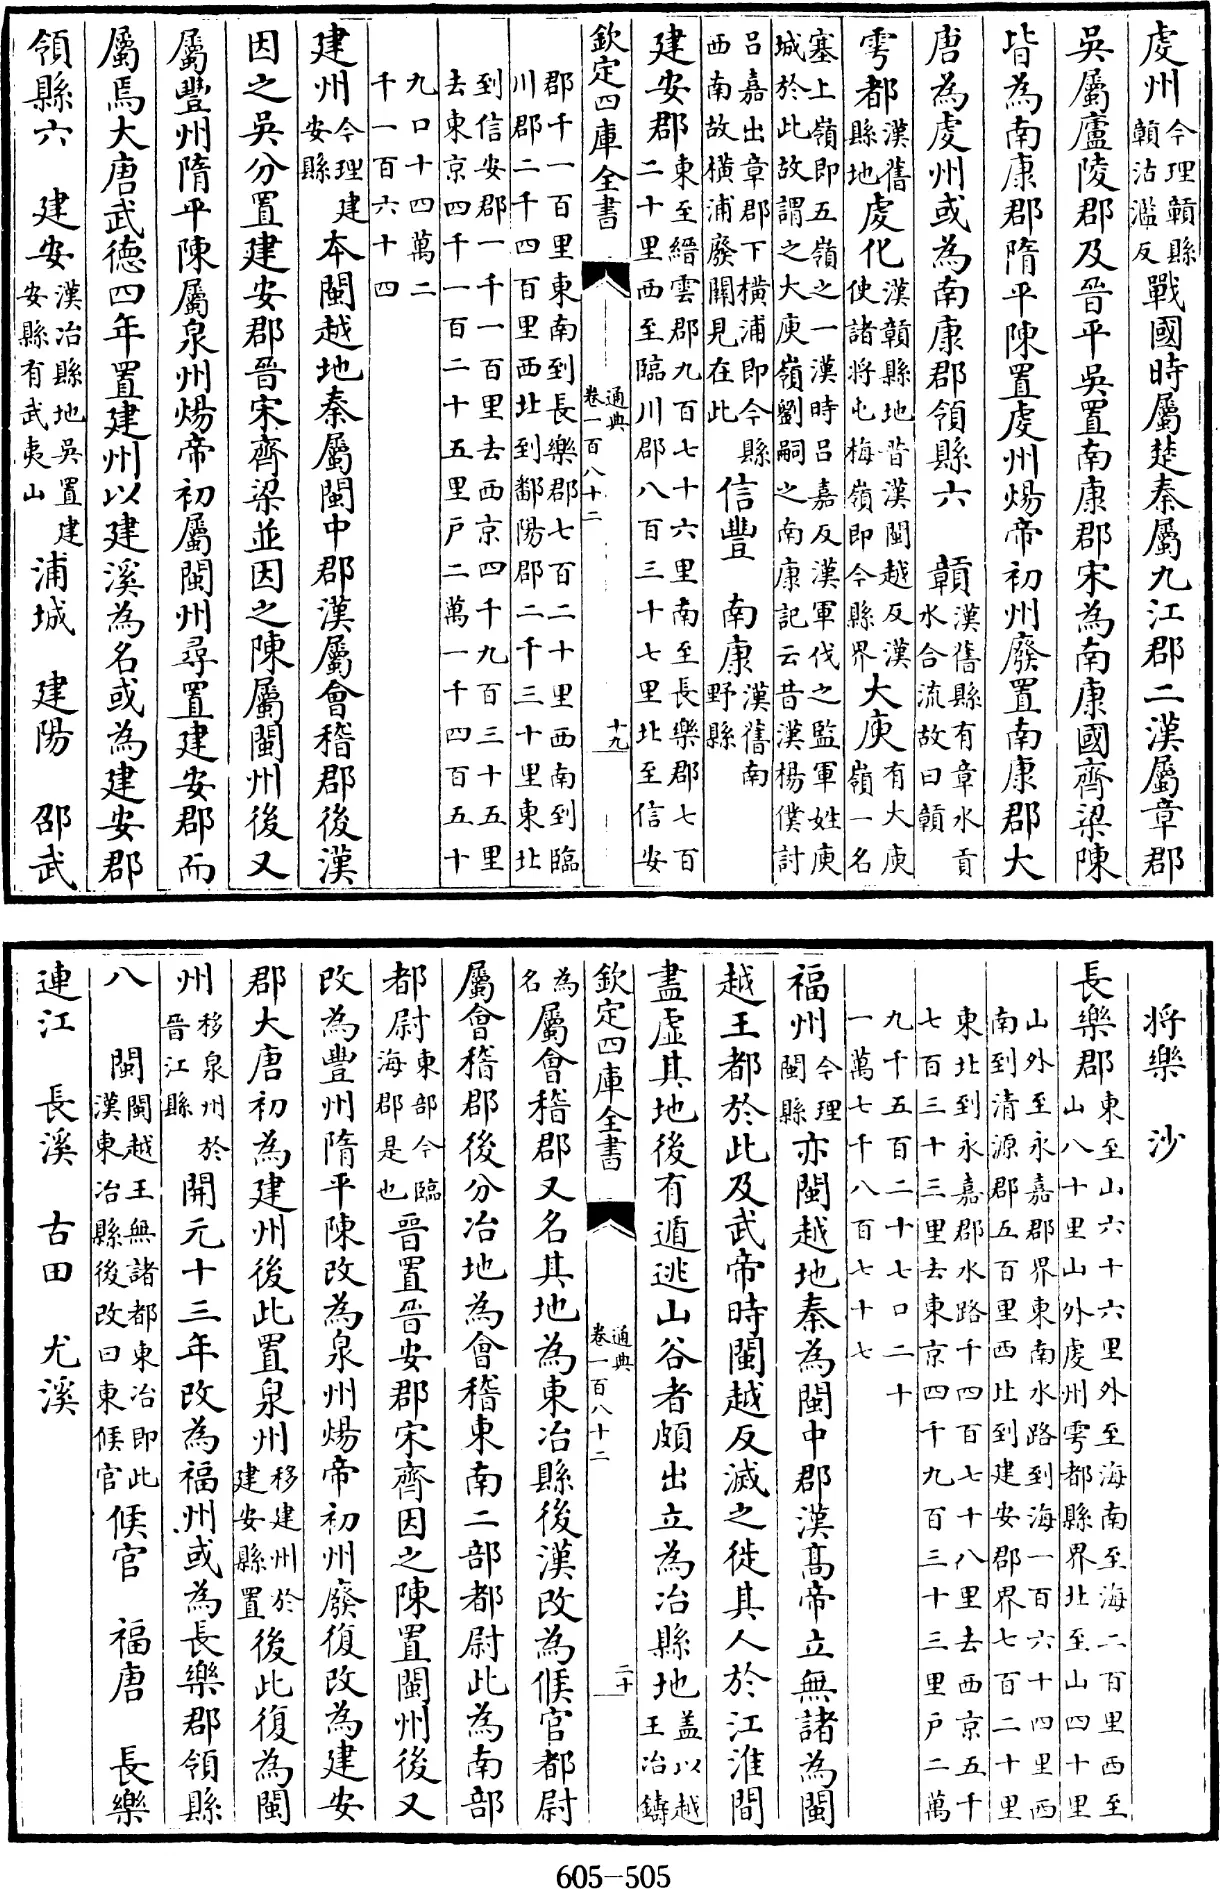 虔州今理贑縣贑沽濫反戰國時屬楚秦屬九江郡二漢屬章郡
吳屬廬陵郡及晉平吳置南康郡宋為南康國齊梁陳
皆為南康郡隋平陳置虔州煬帝初州廢置南康郡大
唐為虔州或為南康郡領縣六　贑漢舊縣有章水貢水合流故曰贑
雩都漢舊縣地虔化漢贑縣地昔漢閩越反漢使諸將屯梅嶺即今縣界大庾有大庾嶺一名
塞上嶺即五嶺之一漢時吕嘉反漢軍伐之監軍姓庾城於此故謂之大庾嶺劉嗣之南康記云昔漢楊僕討
吕嘉出章郡下橫浦即今縣西南故橫浦廢關見在此信豐　南康漢舊南野縣
建安郡東至縉雲郡九百七十六里南至長樂郡七百二十里西至臨川郡八百三十七里北至信安
欽定四庫全書　通典卷一百八十二　十九
郡千一百里東南到長樂郡七百二十里西南到臨川郡二千四百里西北到鄱陽郡二千三十里東北
到信安郡一千一百里去西京四千九百三十五里去東京四千一百二十五里戶二萬一千四百五十
九口十四萬二千一百六十四
建州今理建安縣本閩越地秦屬閩中郡漢屬會稽郡後漢
因之吳分置建安郡晉宋齊梁並因之陳屬閩州後又
屬豐州隋平陳屬泉州煬帝初屬閩州尋置建安郡而
屬焉大唐武德四年置建州以建溪為名或為建安郡
領縣六　建安漢冶縣地吳置建安縣有武夷山浦城　建陽　邵武
將樂　沙
長樂郡東至山六十六里外至海南至海二百里西至山八十里山外虔州雩都縣界北至山四十里
山外至永嘉郡界東南水路到海一百六十四里西南到清源郡五百里西北到建安郡界七百二十里
東北到永嘉郡水路千四百七十八里去西京五千七百三十三里去東京四千九百三十三里戶二萬
九千五百二十七口二十一萬七千八百七十七
福州今理閩縣亦閩越地秦為閩中郡漢高帝立無諸為閩
越王都於此及武帝時閩越反滅之徙其人於江淮間
盡虛其地後有遁逃山谷者頗出立為冶縣地蓋以越王冶鑄
欽定四庫全書　通典卷一百八十二　二十
為名屬會稽郡又名其地為東冶縣後漢改為候官都尉
屬會稽郡後分冶地為會稽東南二部都尉此為南部
都尉東部今臨海郡是也晉置晉安郡宋齊因之陳置閩州後又
改為豐州隋平陳改為泉州煬帝初州廢復改為建安
郡大唐初為建州後此置泉州移建州於建安縣置後此復為閩
州移泉州於晉江縣開元十三年改為福州或為長樂郡領縣
八　閩閩越王無諸都東冶即此漢東冶縣後改曰東候官候官　福唐　長樂
連江　長溪　古田　尤溪
605-505